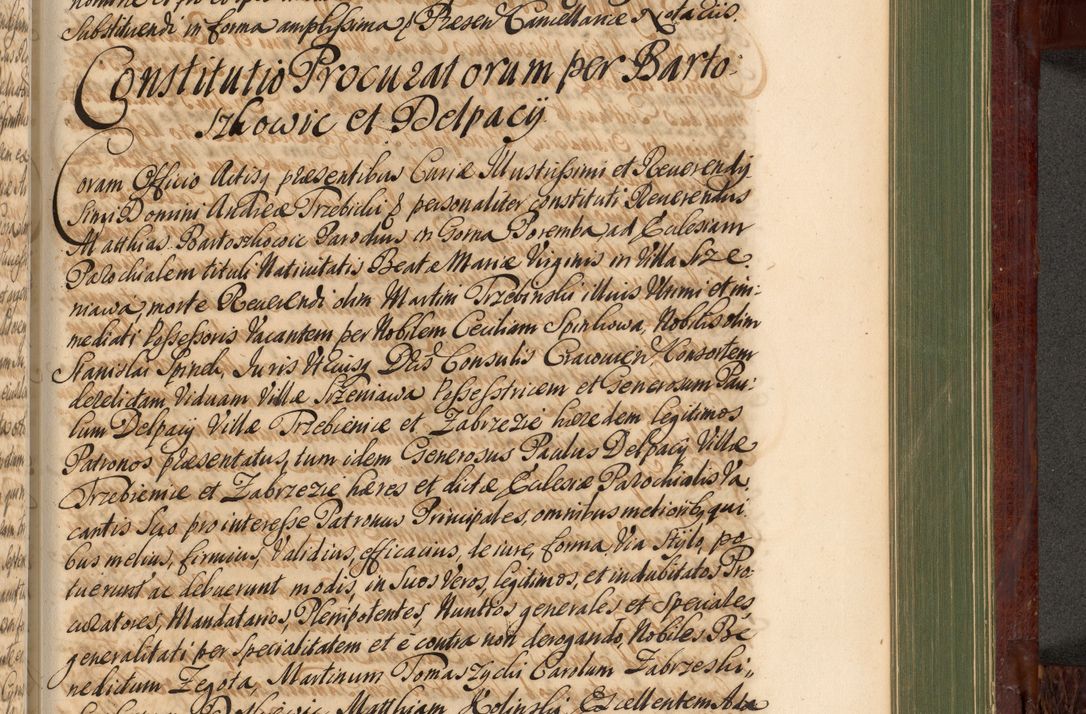 Substituendi in forma amplissima ꝑ Præsen Cancellariæ Notacüs.
Constitutio Procuratorum per Barto:
szkowic et Delpacÿ.
Coram Officio Actisq præsentibus Curiæ Illustrissimi et Reuerendis
simi Domini Andreæ Trzebicki ꝑ personaliter constituti Reuerendus
Matthias Bartoszkowic Parochus in Gorna Poremba, ad Ecclesiam
Parochialem tituli Natiuitatis Beatæ Mariæ Virginis in Villa Srze
niawa, morte Reuerendi olim Martini Trzebinski illius Vltimi et im:
mediati Possessoris Vacantem per Nobilem Cecilliam Spinkowa, Nobilis olim
Stanislai Spinek, Juris Vtriusq Dris Consulis Cracouien Consortem
derelictam Viduam Villæ Srzeniawa Possesstricem et Generosum Pau:
lum Delpacy Villæ Trzebieniæ et Zabrzezie hæredem legitimos
Patronos præsentatus, tum idem Generosus Paulus Delpacy Villæ
Trzebieniæ et Zabrzezie hæres et dictæ Ecclesiæ Parochialis Va
cantis Suo pro interesse Patronus Principales, omnibus melioribq, qui
bus melius, firmius, Validius, efficacius, de iure, forma, Via Stylo, po
tuerunt ac debuerunt modis, in Suos Veros, legitimos, et indubitatos Pro
curatores, Mandatarios, Plenipotentes, Nuntios generales et Speciales
generalitati per Specialitatem et è contra non derogando, Nobiles Be
nedictum Zegota, Martinum Tomaszycki Carolum Zabrzeski,
Matthiam Kolinski, Excellentem Ada